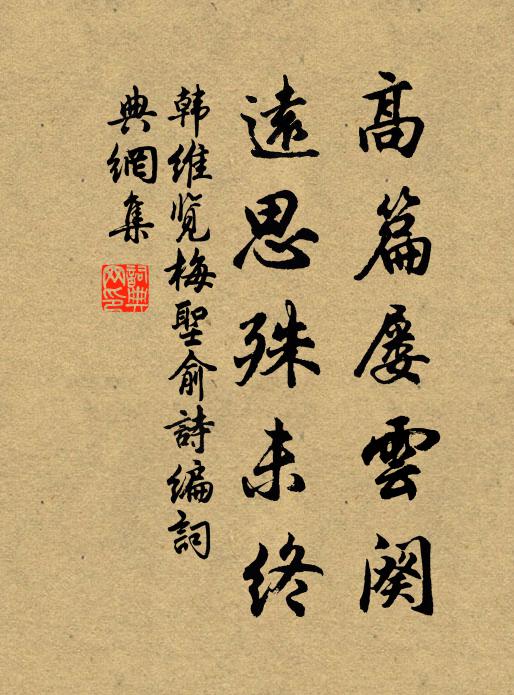 高篇屡雲阕
遠思殊未终
韩維览梅聖俞詩编詞
典網集
詞典網印